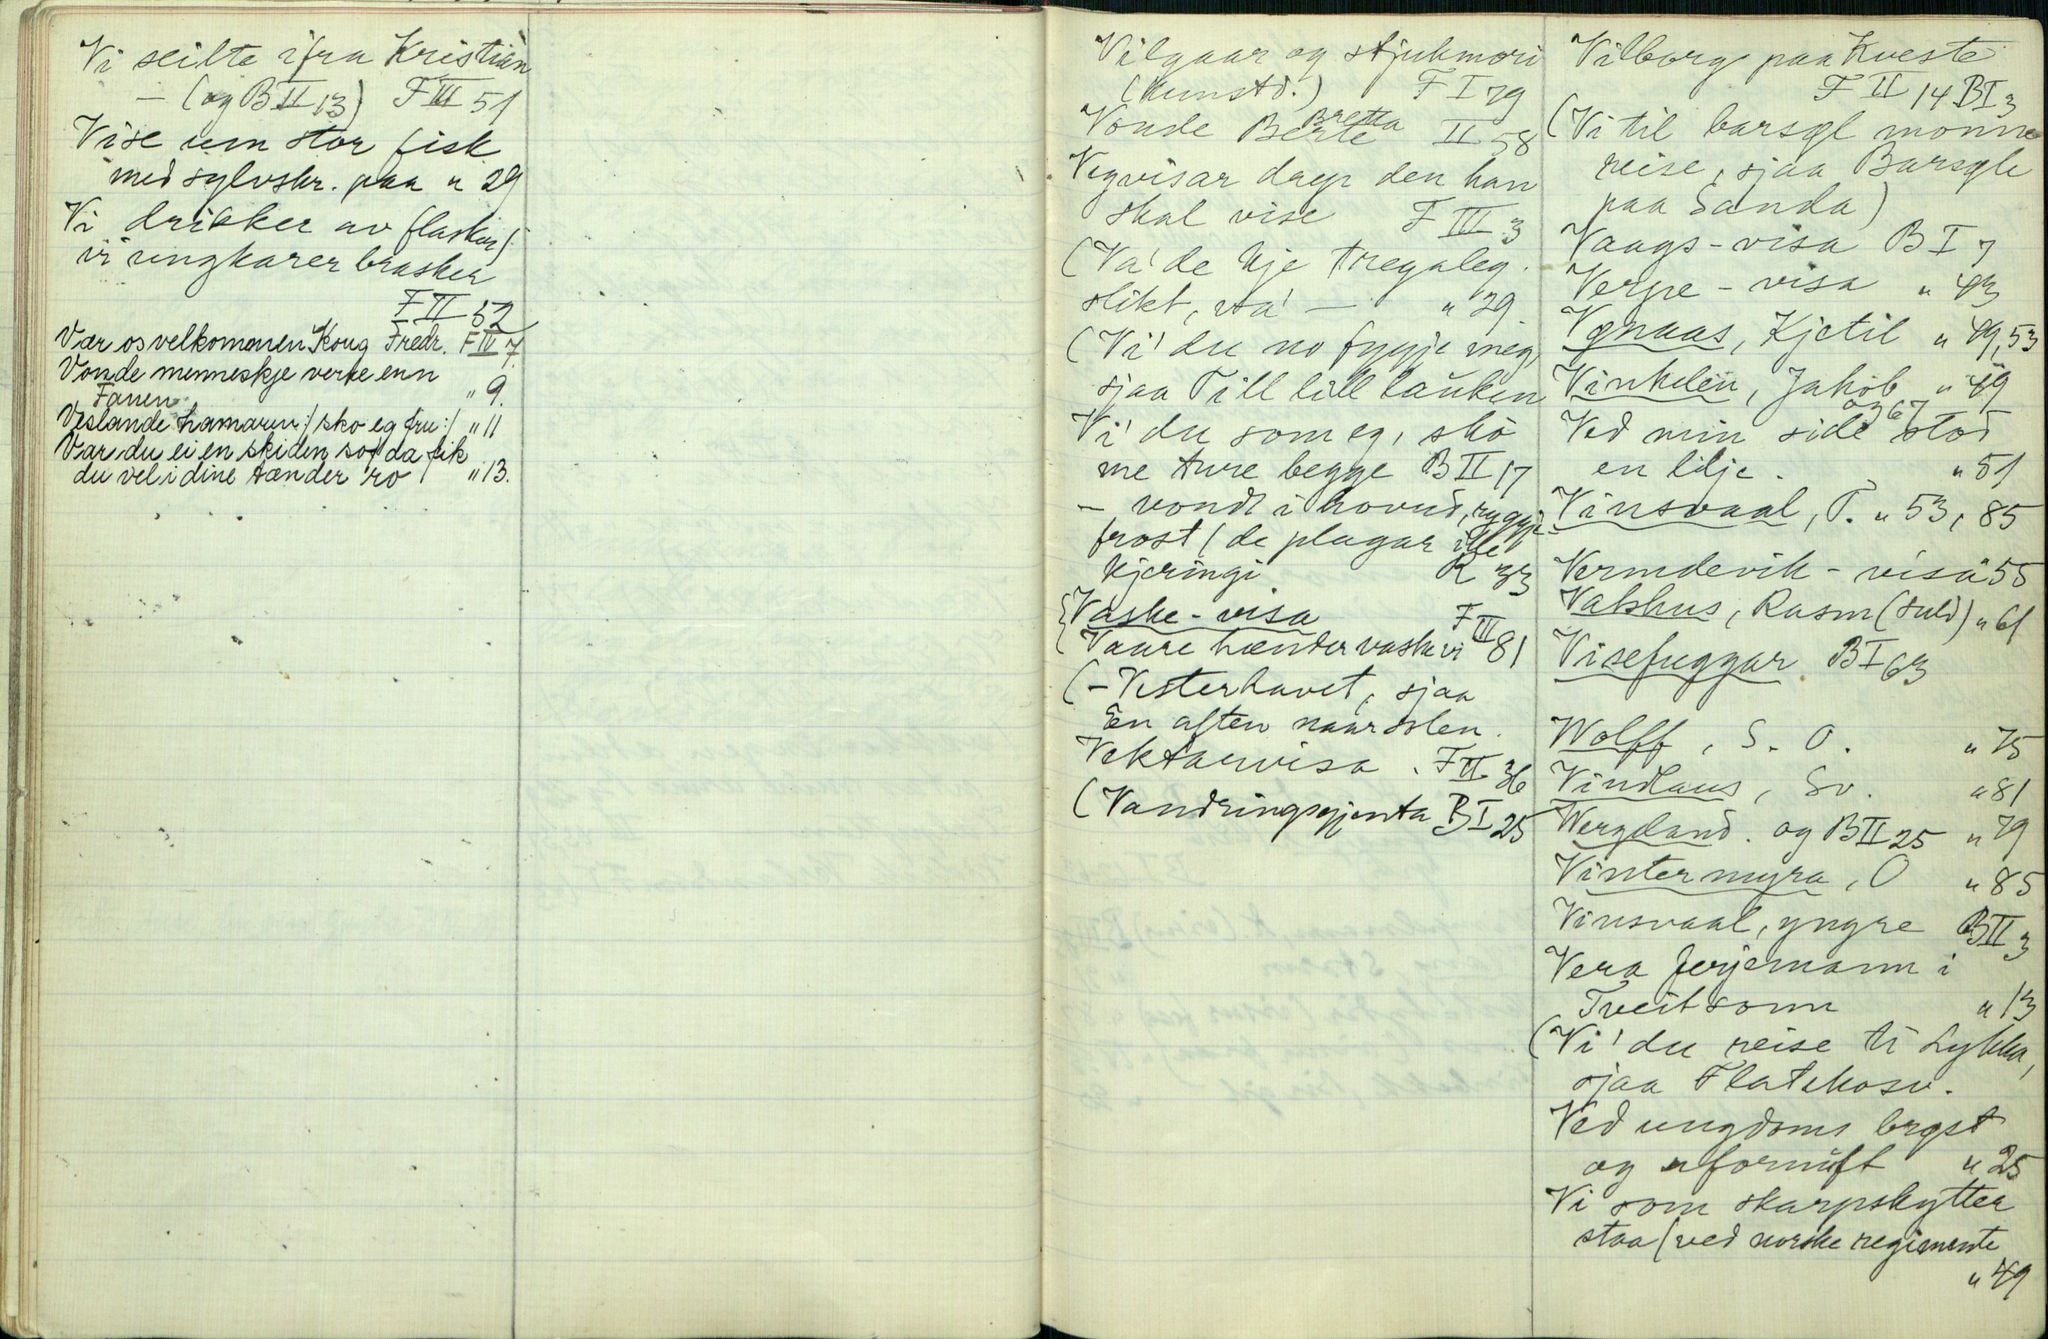 Vi seilte ifra Kristian
— (og B II 13) F III 51
Vise um stor fisk
med sylvskr. paa " 29
Vi drikker av flasker /
vi ungkarer brasker
F II 52
Vær os velkommen Kong Fredr. F IV 7.
Vonde menneskje verre enn
Fanen " 9.
Veslande Hamaren :/ sko eg fru :/ " 11
Var du ei en skiden so / da fik
du vel i dine tænder ro " 13.
Vilgaar og stjukmori
(kunstd.) F I 79
Bretta
Vonde Berte II 58
Vegvisar drep den han
skal vise F III 3
(Va' de kje tregaleg
slikt, va' — " 29
(Vi' du no fygje meg
sjaa Till lill tauken
Vi' du som eg, sko
me ture begge B II 17
— vondt i hovud, rygg,
frost / de plagar ille
kjeringi R 33
{Vaske-visa F III
Vaare hænder vaske vi 81
(— Vesterhavet, sjaa
En aften naar solen.
Vektarvisa. F II 36
(Vandringsgjenta B I 25
Vilborg paa Kveste
F II 14 B I 3
(Vi til barsøl monne
reise, sjaa Barsøle
paa Sanda)
Vaags-visa B I 7
Verpe-visa " 43
Vønaas, Kjetil " 49, 53
Vinkelen, Jakob " 49
og 67
Ved min side stod
en lilje. " 51
Vinsvaal, T. " 53, 85
Vermdevik-visa " 55
Vatshus, Rasm (Suld) " 61
Visefuggar B I 63
Wolff, S. O. " 75
Vindlaus, Sv. " 81
Wergeland. og B II 25 " 79
Vintermyra, O " 85
Vinsvaal, yngre B II 3
Vera ferjemann i
Tveitsonn " 13
(Vi' du reise ti Lykka,
sjaa Flatekosv.
Ved ungdoms brøst
og ufornuft " 25
Vi som skarpskytter
staa / ved norske regimente
" 49